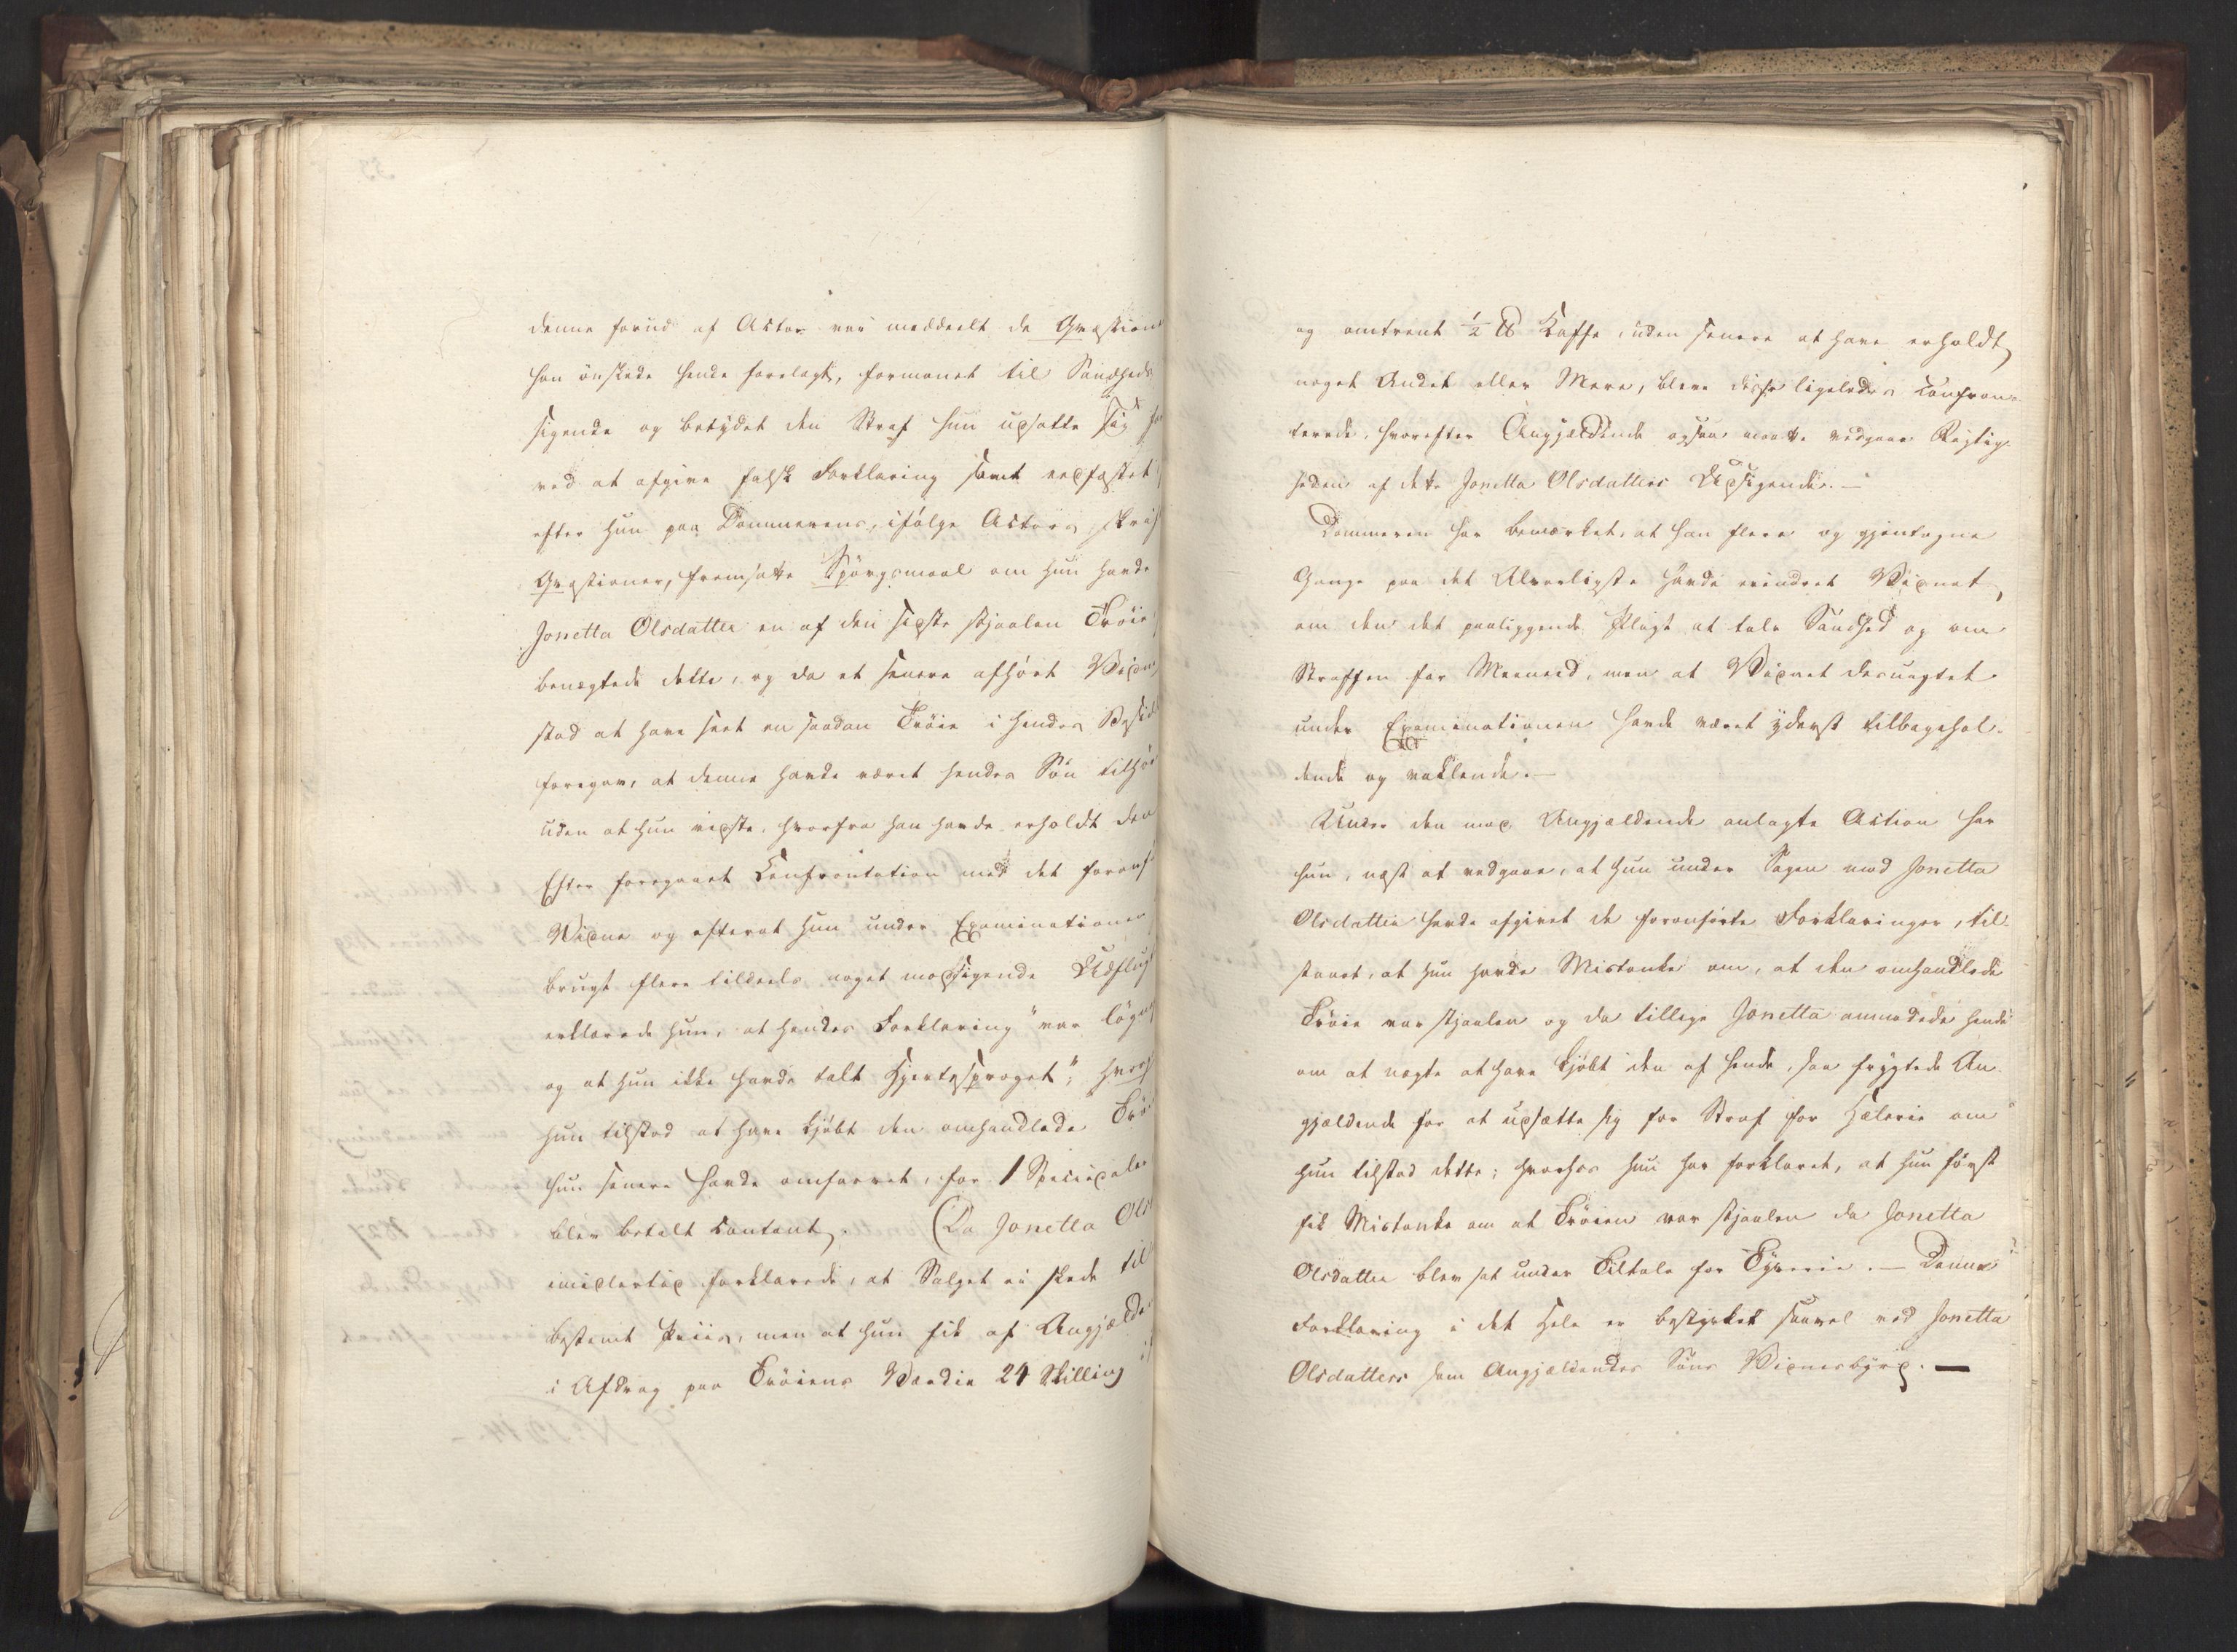 denne forud af Actor var meddeelt de Qvæstion
han ønskede hende forelagt, formanet til Sandheds
sigende og betydet den Straf hun udsatte sig
ved at afgive falsk Forklaring samt edfæstet
efter hun paa Dommerens, ifølge Actors skrif
Qvæstioner, fremsatte Spørgsmaal om hun havde
Jonetta Olsdatter en af den sidste stjaalen Trøie
benægtede dette, og da et senere afhørt Vidne
stod at have seet en saadan Trøie i hendes Besid
foregav, at denne havde været hendes Søn tilhø
uden at hun vidste, hvorfra han havde erholdt den
Efter foregaaet Confrontation med det foranf
Vidne og efterat hun under Examinationen
brugt flere tildeels noget modsigende Udflug
erklærede hun, at hendes Forklaring "var løgn
og at hun ikke havde talt Hjertesproget"; hvor
hun tilstod at have kjøbt den omhandlede Trø
hun senere havde omfarvet, for 1 Speciedaler
blev betalt contant. (Da Jonetta Ols
imidlertid forklarede, at Salget ei skede til
bestemt Priis, men at hun fik af Angjælde
i Afdrag paa Trøiens Værdie 24 Skilling
og omtrent ½ ℔ Kaffe, uden senere at have erholdt
noget Andet eller Mere, bleve disse ligeledes confron-
terede, hvorefter Angjældende ogsaa maatte vedgaae Rigtig-
heden af dette Jonetta Olsdatters Udsigende. —
Dommeren har bemærket, at han flere og gjentagne
Gange paa det Alvorligste havde erindret Vidnet
om den det paaliggende Pligt at tale Sandhed og om
Straffen for Meeneed, men at Vidnet desuagtet
under Examinationen havde været yderst tilbagehol-
dende og vaklende. —
Under den mod Angjældende anlagte Action har
hun, næst at vedgaae, at hun under Sagen mod Jonetta
Olsdatter havde afgivet de foranførte Forklaringer, til-
staaet, at hun havde Mistanke om, at den omhandlede
Trøie var stjaalen og da tillige Jonetta anmodede hende
om at nægte at have kjøbt den af hende, saa frygtede An-
gjældende for at udsætte sig for Straf for Hæleri om
hun tilstod dette; hvorhos hun har forklaret, at hun først
fik Mistanke om at Trøien var stjaalen da Jonetta
Olsdatter blev sat under Tiltale for Tyverie. — Denne
Forklaring i det Hele er bestyrket saavel ved Jonetta
Olsdatters som Angjældendes Søns Vidnesbyrd. —